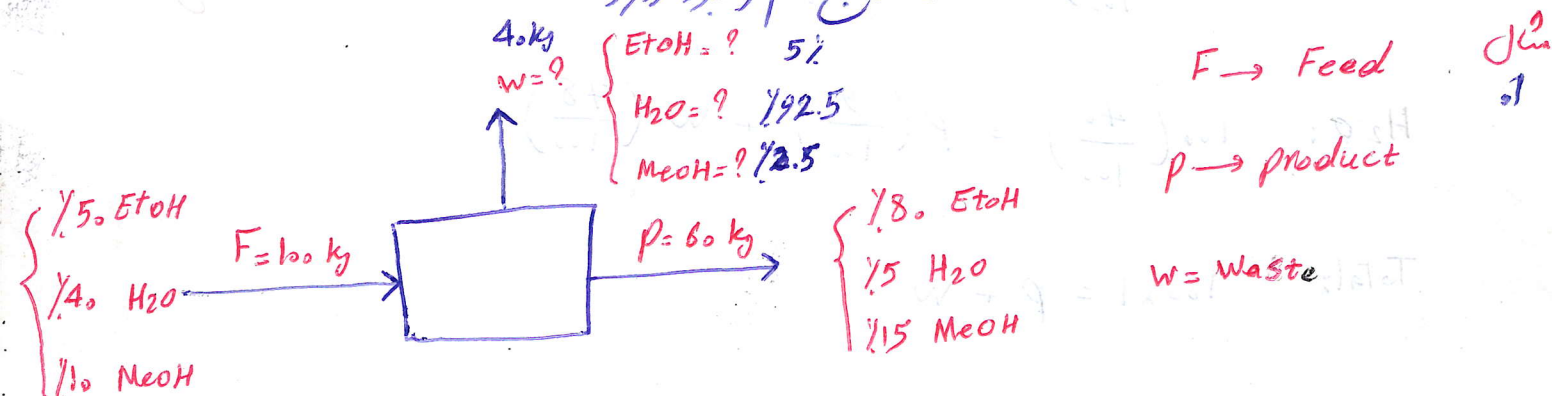 4.kg
w=?
EtoH = ? 5%
H2O = ? %92.5
MeoH = ? %2.5
F → Feed
شكل
p → product
w = Waste
%5. EtoH
%4. H2O
%1. MeoH
F = 1.. kg
P = 6. kg
%8. EtoH
%5 H2O
%15 MeOH